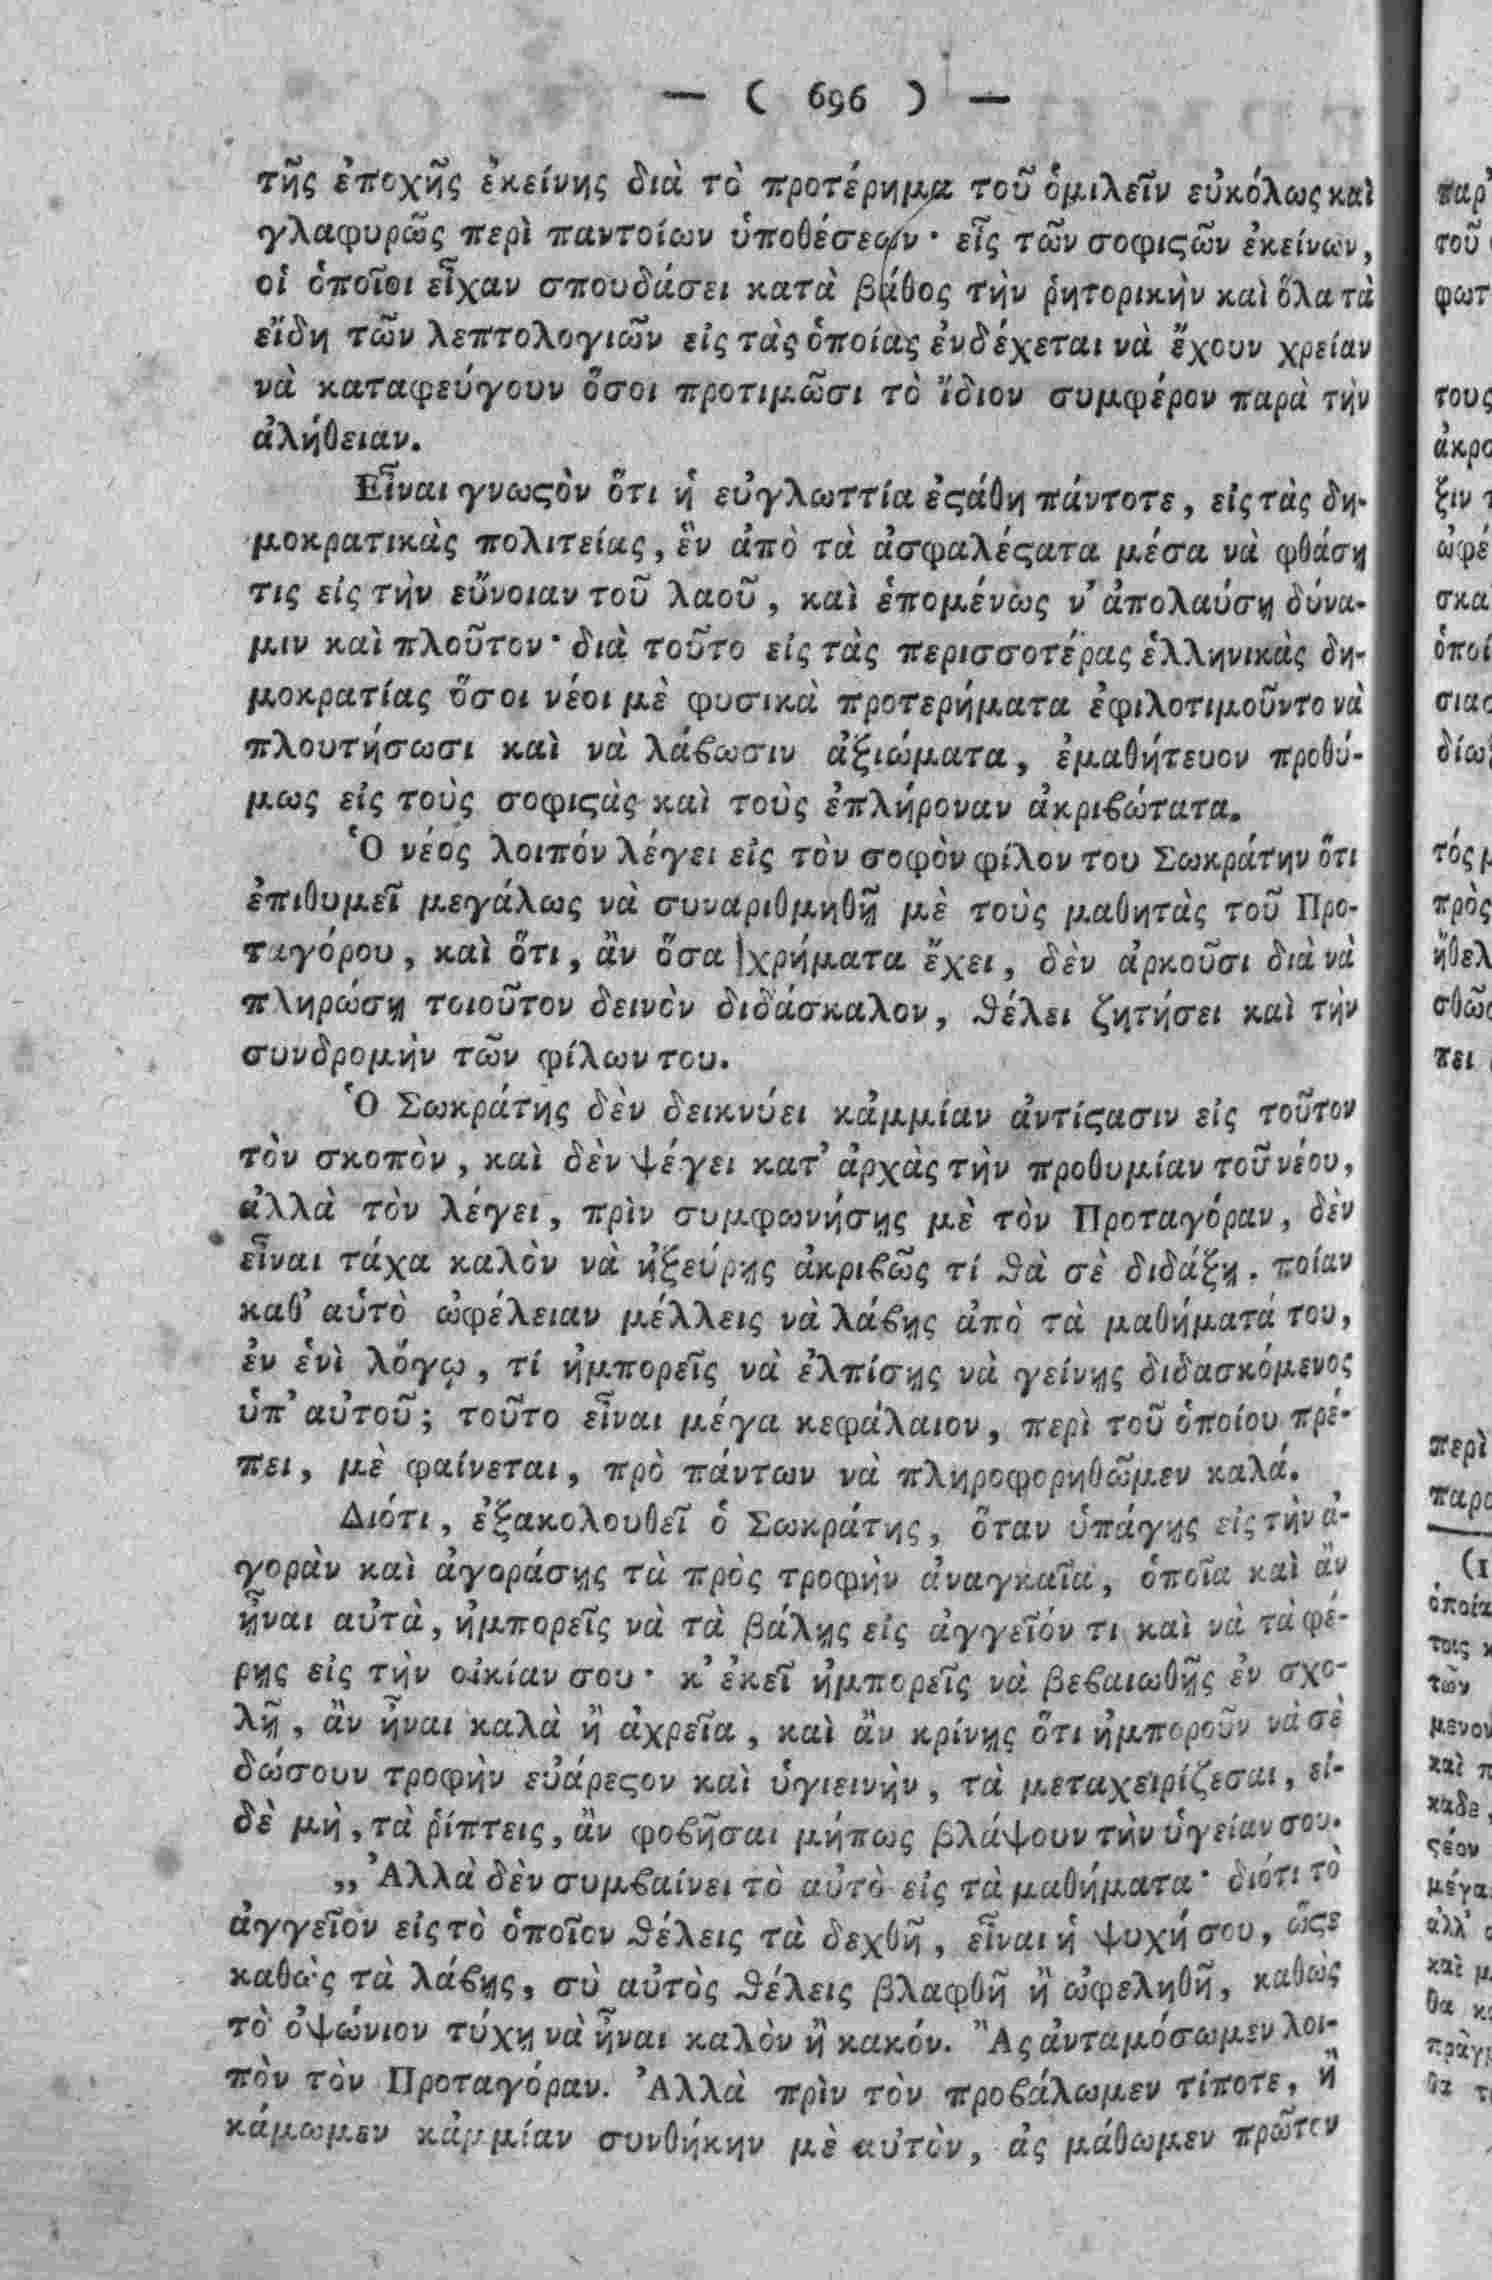 — ( 696 ) —
τῆς ἐποχῆς ἐκείνης διὰ τὸ προτέρημα τοῦ ὁμιλεῖν εὐκόλως καὶ
γλαφυρῶς περὶ παντοίων ὑποθέσεων· εἷς τῶν σοφιϛῶν ἐκείνων,
οἱ ὁποῖοι εἶχαν σπουδάσει κατὰ βάθος τὴν ῥητορικὴν καὶ ὅλα τὰ
εἴδη τῶν λεπτολογιῶν εἰς τὰς ὁποίας ἐνδέχεται νὰ ἔχουν χρείαν
νὰ καταφεύγουν ὅσοι προτιμῶσι τὸ ἴδιον συμφέρον παρὰ τὴν
ἀλήθειαν.
Εἶναι γνωϛὸν ὅτι ἡ εὐγλωττία ἐϛάθη πάντοτε, εἰς τὰς δη-
μοκρατικὰς πολιτείας, ἓν ἀπὸ τὰ ἀσφαλέϛατα μέσα νὰ φθάσῃ
τις εἰς τὴν εὔνοιαν τοῦ λαοῦ, καὶ ἑπομένως ν' ἀπολαύσῃ δύνα-
μιν καὶ πλοῦτον· διὰ τοῦτο εἰς τὰς περισσοτέρας ἑλληνικὰς δη-
μοκρατίας ὅσοι νέοι μὲ φυσικὰ προτερήματα ἐφιλοτιμοῦντο νὰ
πλουτήσωσι καὶ νὰ λάϐωσιν ἀξιώματα, ἐμαθήτευον προθύ-
μως εἰς τοὺς σοφιϛὰς καὶ τοὺς ἐπλήροναν ἀκριϐώτατα.
Ὁ νέος λοιπόν λέγει εἰς τὸν σοφὸν φίλον του Σωκράτην ὅτι
ἐπιθυμεῖ μεγάλως νὰ συναριθμηθῇ μὲ τοὺς μαθητὰς τοῦ Προ-
ταγόρου, καὶ ὅτι, ἂν ὅσα χρήματα ἔχει, δὲν ἀρκοῦσι διὰ νὰ
πληρώσῃ τοιοῦτον δεινὸν διδάσκαλον, ϑέλει ζητήσει καὶ τὴν
συνδρομὴν τῶν φίλων του.
Ὁ Σωκράτης δὲν δεικνύει κἀμμίαν ἀντίϛασιν εἰς τοῦτον
τὸν σκοπὸν, καὶ δὲν ψέγει κατ' ἀρχὰς τὴν προθυμίαν τοῦ νέου,
ἀλλὰ τὸν λέγει, πρὶν συμφωνήσῃς μὲ τὸν Προταγόραν, δὲν
εἶναι τάχα καλὸν νὰ ἠξεύρῃς ἀκριϐῶς τί ϑὰ σὲ διδάξῃ. ποίαν
καθ' αὑτὸ ὠφέλειαν μέλλεις νὰ λάϐῃς ἀπὸ τὰ μαθήματά του,
ἐν ἑνὶ λόγῳ, τί ἠμπορεῖς νὰ ἐλπίσῃς νὰ γείνῃς διδασκόμενος
ὑπ' αὐτοῦ; τοῦτο εἶναι μέγα κεφάλαιον, περὶ τοῦ ὁποίου πρέ-
πει, μὲ φαίνεται, πρὸ πάντων νὰ πληροφορηθῶμεν καλά.
Διότι, ἐξακολουθεῖ ὁ Σωκράτης, ὅταν ὑπάγῃς εἰς τὴν ἀ-
γορὰν καὶ ἀγοράσῃς τὰ πρὸς τροφὴν ἀναγκαῖα, ὁποῖα καὶ ἂν
ᾖναι αὐτὰ, ἠμπορεῖς νὰ τὰ βάλῃς εἰς ἀγγεῖόν τι καὶ νὰ τὰ φέ-
ρῃς εἰς τὴν οἰκίαν σου· κ' ἐκεῖ ἠμπορεῖς νὰ βεϐαιωθῇς ἐν σχο-
λῇ, ἂν ᾖναι καλὰ ἢ ἀχρεῖα, καὶ ἂν κρίνῃς ὅτι ἠμποροῦν νὰ σὲ
δώσουν τροφὴν εὐάρεϛον καὶ ὑγιεινὴν, τὰ μεταχειρίζεσαι, εἰ-
δὲ μὴ, τὰ ῥίπτεις, ἂν φοϐῆσαι μήπως βλάψουν τὴν ὑγείαν σου.
„ Ἀλλὰ δὲν συμϐαίνει τὸ αὐτὸ εἰς τὰ μαθήματα· διότι τὸ
ἀγγεῖον εἰς τὸ ὁποῖον ϑέλεις τὰ δεχθῇ, εἶναι ἡ ψυχή σου, ὥϛε
καθὼς τὰ λάϐῃς, σὺ αὐτὸς ϑέλεις βλαφθῆ ἢ ὠφεληθῆ, καθὼς
τὸ ὀψώνιον τύχῃ νὰ ᾖναι καλὸν ἢ κακόν. Ἂς ἀνταμόσωμεν λοι-
πὸν τὸν Προταγόραν. Ἀλλὰ πρὶν τὸν προϐάλωμεν τίποτε, ἢ
κάμωμεν κἀμμίαν συνθήκην μὲ αὐτὸν, ἀς μάθωμεν πρῶτον